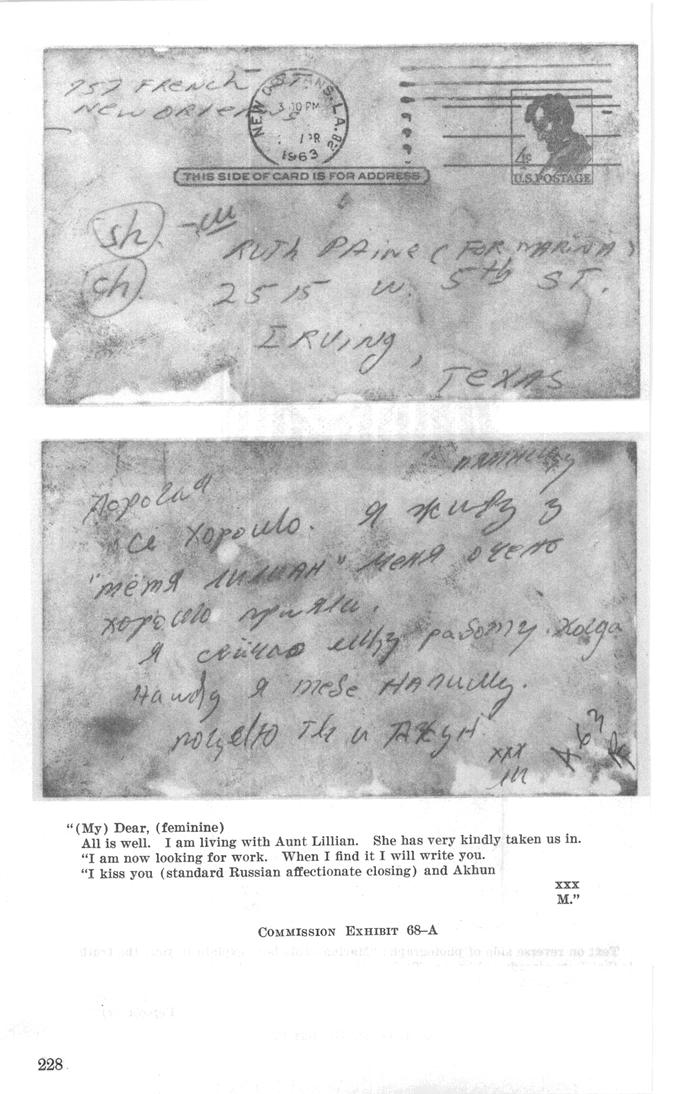 757 FRENCH ST.
NEW ORLEANS
NEW ORLEANS, LA.
3 30 PM
APR
1963
4¢
U.S. POSTAGE
THIS SIDE OF CARD IS FOR ADDRESS
sh
ch
RUTH PAINE (FOR MARINA)
2515 W. 5th ST.
IRVING,
TEXAS
пятницу
Дорогая
все хорошо. Я живу у
"тётя Лилиан" меня очень
хорошо приняли.
Я сейчас ищу работу. Когда
найду я тебе напишу.
целую
xxx
"(My) Dear, (feminine)
All is well. I am living with Aunt Lillian. She has very kindly taken us in.
"I am now looking for work. When I find it I will write you.
"I kiss you (standard Russian affectionate closing) and Akhun
xxx
M."
COMMISSION EXHIBIT 68–A
228